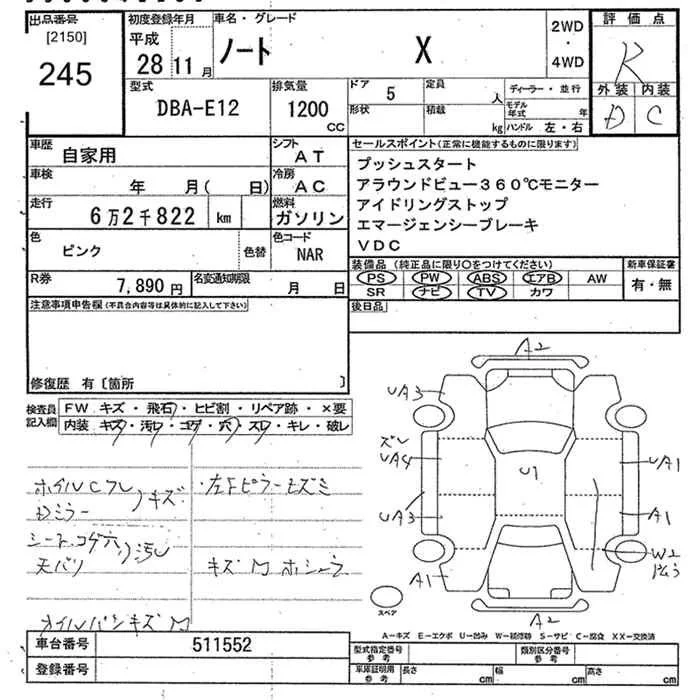 出品番号
[2150]
245
初度登録年月
平成
28 11 月
車名・グレード
ノート X
2WD
・
4WD
評価点
R
外装 内装
D C
型式
DBA-E12
排気量
1200
CC
ドア 5
形状
定員 人
積載 kg
ディーラー・並行
モデル年式 年
ハンドル 左・右
車歴
自家用
シフト
AT
車検
年 月( 日)
冷房
AC
走行
6万2千822 km
燃料
ガソリン
色
ピンク
色替
色コード
NAR
R券
7,890 円
名変通知期限
月 日
セールスポイント(正常に機能するものに限ります)
プッシュスタート
アラウンドビュー360℃モニター
アイドリングストップ
エマージェンシーブレーキ
VDC
装備品 (純正品に限り○をつけてください)
新車保証書
PS PW ABS エアB AW
SR ナビ TV カワ
有・無
後日品
注意事項申告欄(不具合内容等は具体的に記入して下さい)
修復歴 有〔箇所 〕
検査員
記入欄
FW キズ・飛石・ヒビ割・リペア跡・×要
内装 キズ・汚レ・コゲ・穴・スレ・キレ・破レ
キズ
左Fピラー
シート コゲ穴 汚レ
天バリ
キズ
オイルパンキズ
A2
UA3
ズレ
UA4
UA3
A1
U1
UA1
A1
W2
A2
スペア
A−キズ E−エクボ U−凹み W−補修跡 S−サビ C−腐食 XX−交換済
車台番号
511552
登録番号
型式指定番号
参考
類別区分番号
参考
車庫証明用
参考
長さ cm
幅 cm
高さ cm